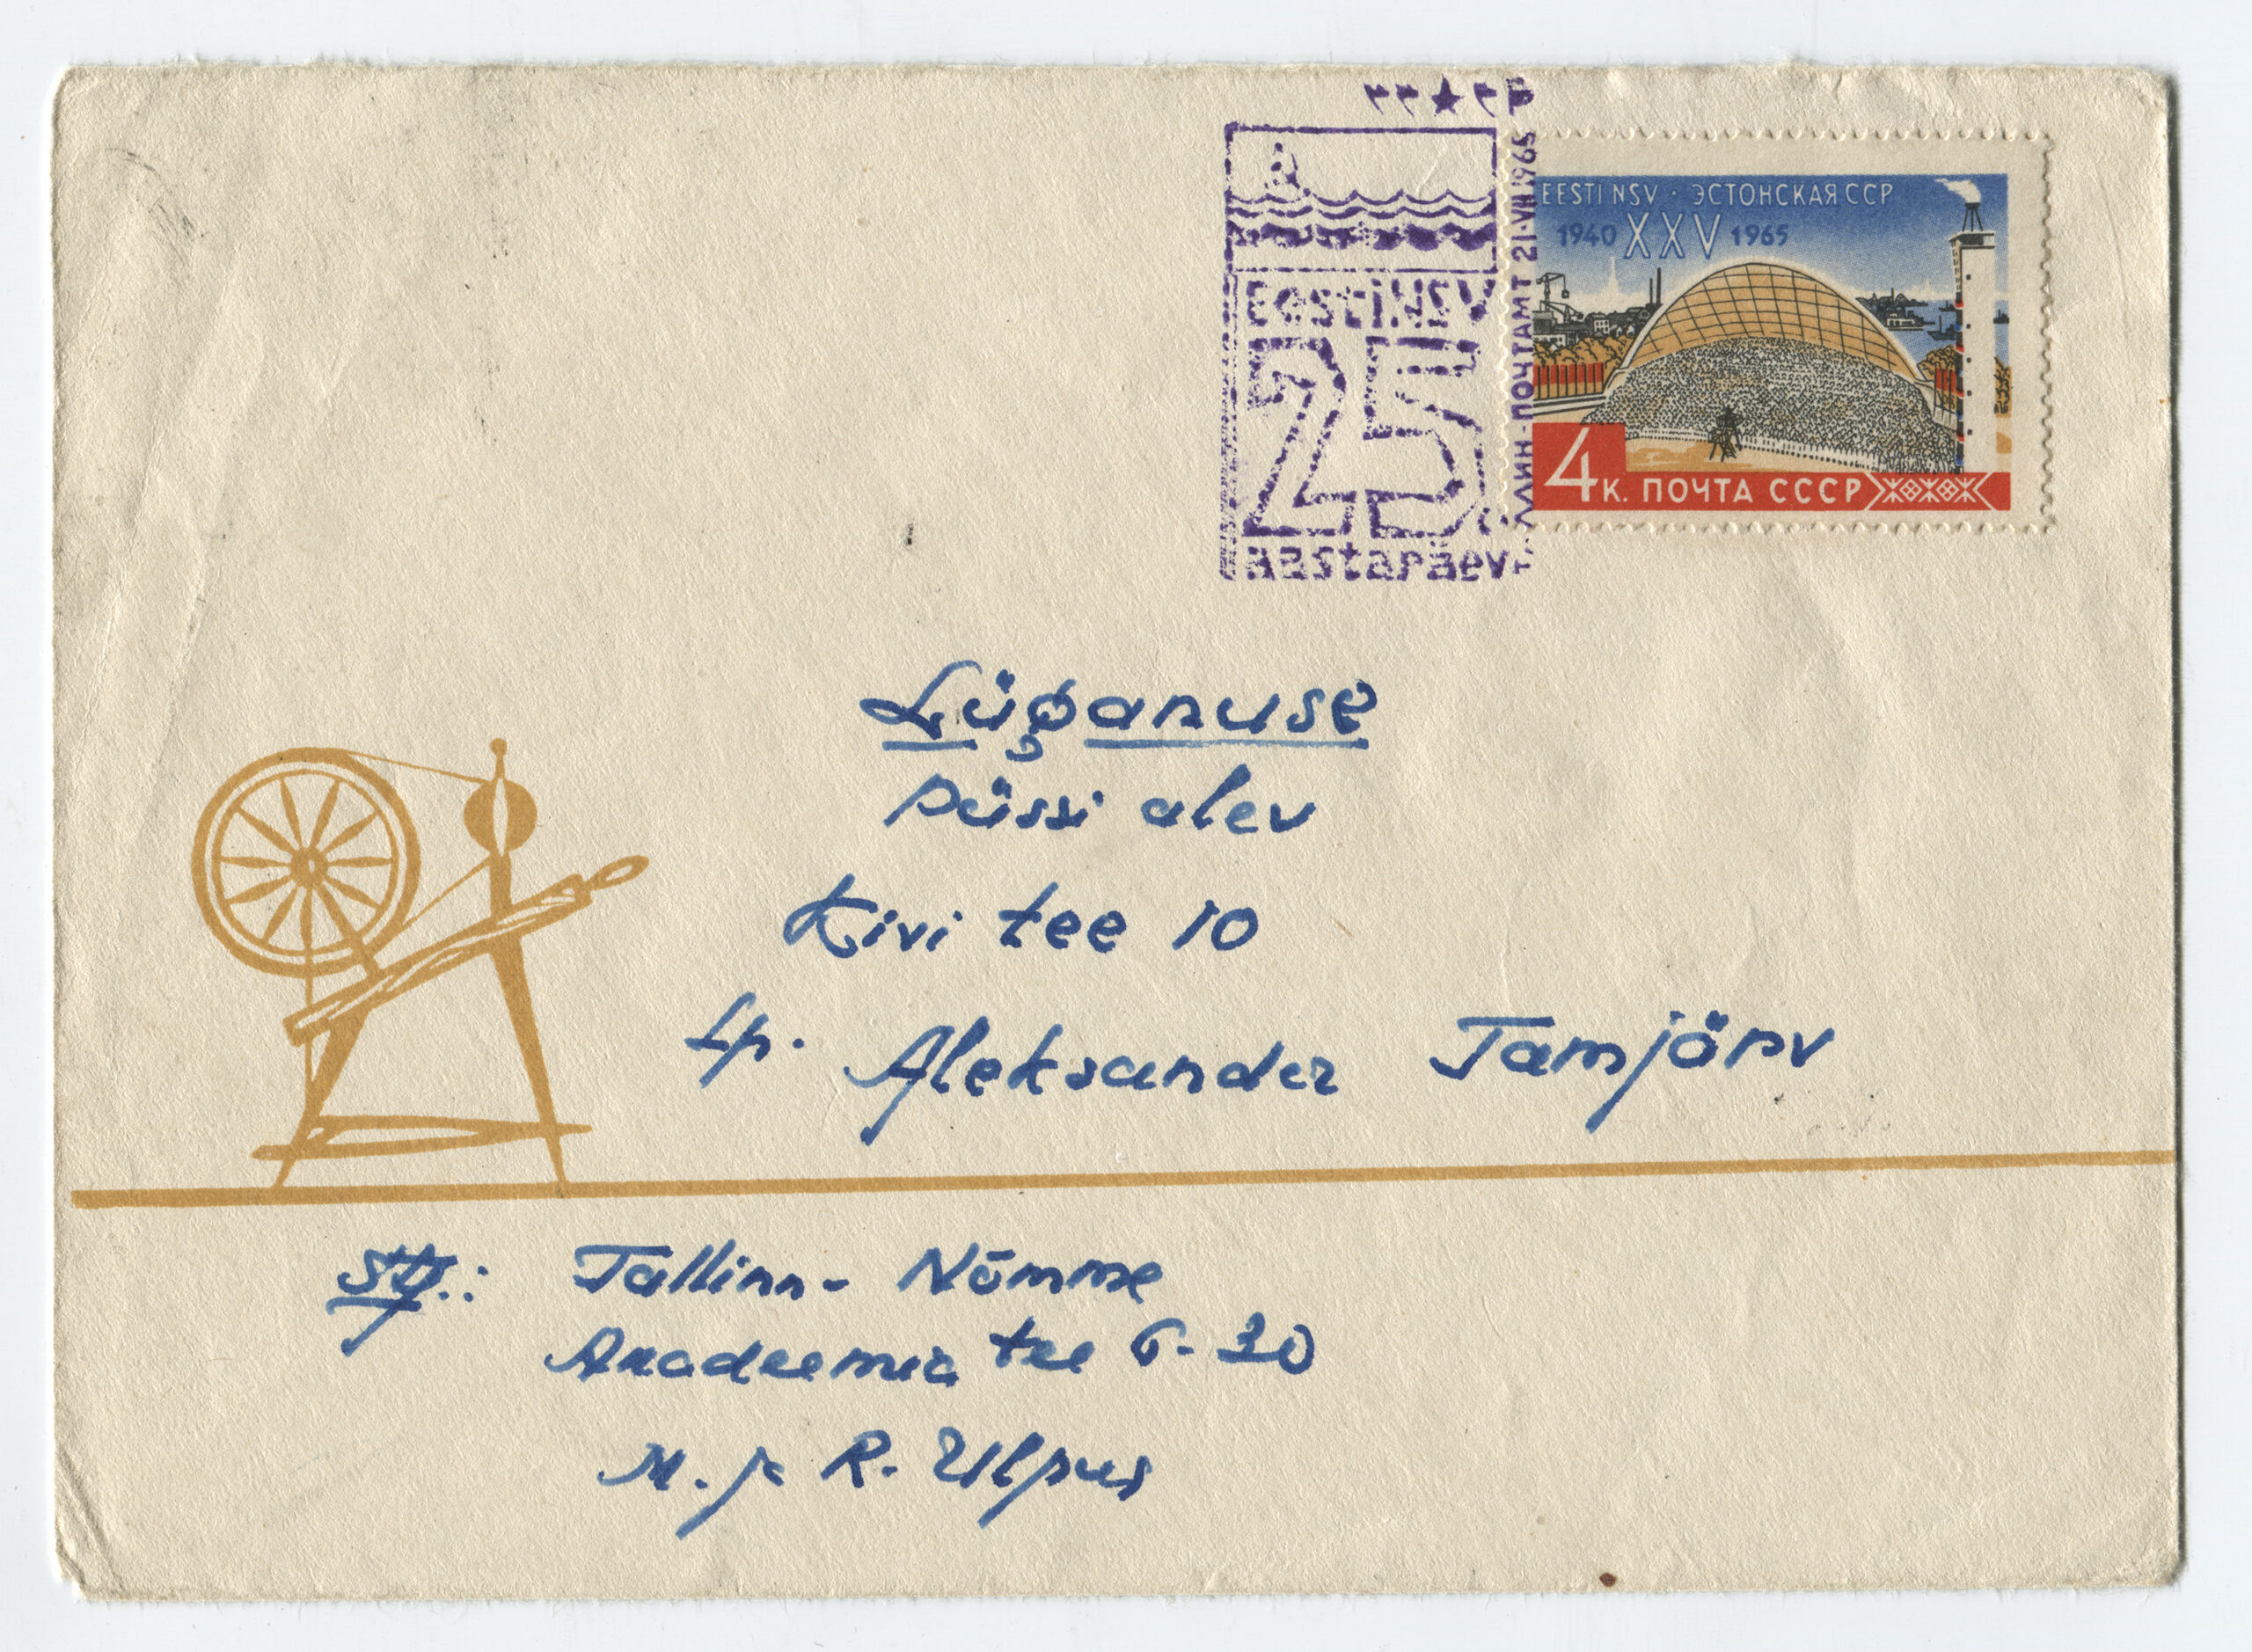 EESTI NSV · ЭСТОНСКАЯ ССР
1940 XXV 1965
4 К. ПОЧТА СССР
Eesti NSV
25.
aastapäev
ЛЛИН-ПОЧТАМТ 21-VII 1965
Lüganuse
Püssi alev
Kivi tee 10
Lp. Aleksander Tamjärv
Tallinn - Nõmme
Akadeemia tee 6-30
M. ja R. Ulpus